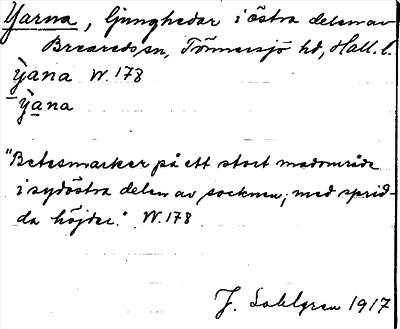 Yarna, ljunghedar i östra delen av
Breareds sn, Tönnersjö hd, Hall. l.
ỳana W. 178
ỳana
"Betesmarker på ett stort madområde
i sydöstra delen av socknen, med sprid-
da höjder." W. 178
J. Sahlgren 1917